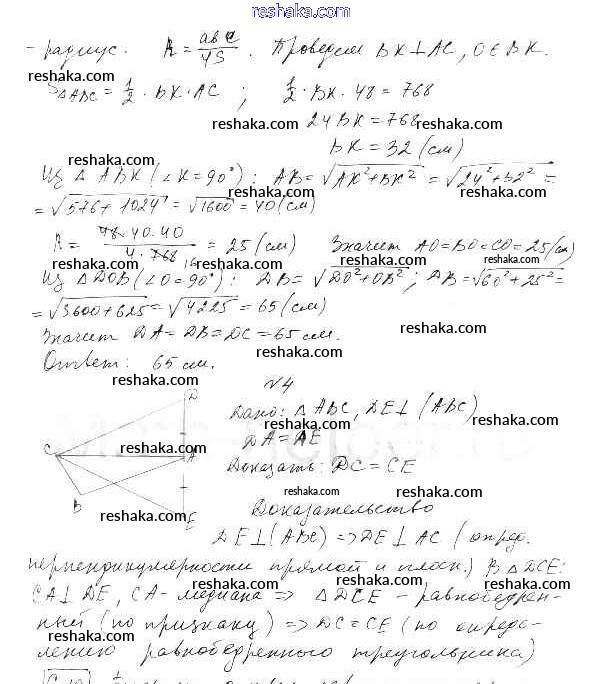 reshaka.com
- радиус. R = abc/4S. Проведем BK⊥AC, O∈BK.
reshaka.com
reshaka.com
S△ABC = 1/2 · BK · AC ; 1/2 · BK · 48 = 768
reshaka.com 24BK = 768 reshaka.com
BK = 32 (см)
reshaka.com
Из △ABK (∠K = 90°): AB = √AK²+BK² = √24²+32² =
reshaka.com reshaka.com
= √576+1024 = √1600 = 40 (см)
R = 48·40·40/4·768 = 25 (см) Значит AO=BO=CO=25(см)
16
reshaka.com reshaka.com reshaka.com
Из △DOB (∠O = 90°): DB = √DO²+OB² ; DB = √60²+25² =
= √3600+625 = √4225 = 65 (см)
reshaka.com
Значит DA = DB = DC = 65 см.
reshaka.com
Ответ: 65 см.
reshaka.com
N4
D
Дано: △ABC, DE⊥(ABC)
reshaka.com
DA = AE
reshaka.com
C A
Доказать: DC = CE
reshaka.com
reshaka.com reshaka.com
B
Доказательство
reshaka.com
E
DE⊥(ABC) => DE⊥AC (опред.
reshaka.com
перпендикулярности прямой и плоск.) В △DCE:
reshaka.com reshaka.com reshaka.com
CA⊥DE, CA - медиана => △DCE - равнобедрен-
ный (по признаку) => DC = CE (по опреде-
reshaka.com reshaka.com
лению равнобедренного треугольника)
reshaka.com reshaka.com